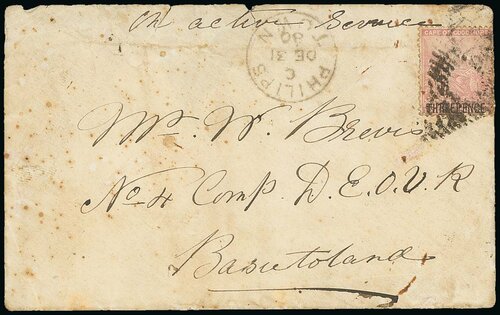 On active Service
CAPE OF GOOD HOPE
THREEPENCE
PHILIPSTOWN
C
DE 31
80
Mr. W. Brevis
No 4 Comp. D. E. O. V. R
Basutoland